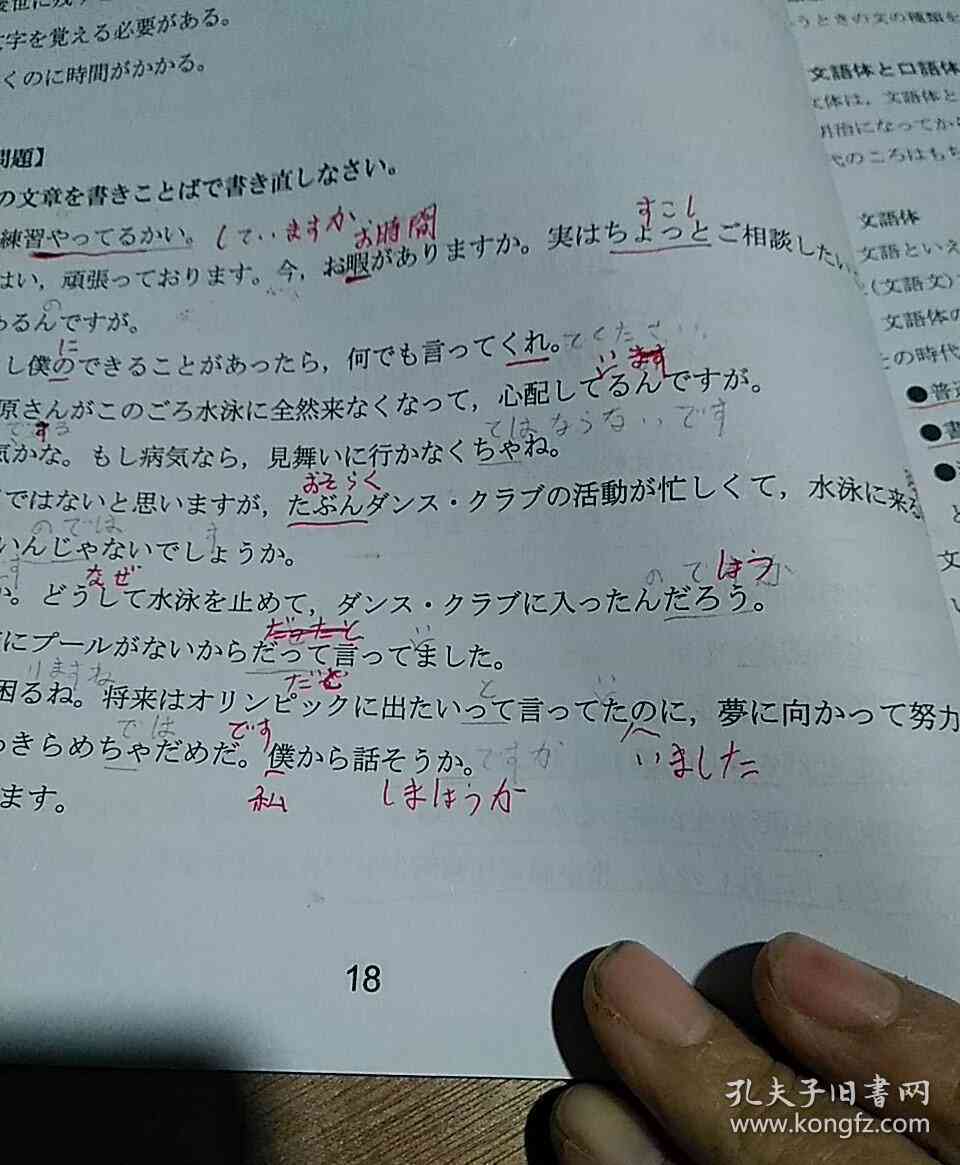 文字を覚える必要がある。
くのに時間がかかる。
問題】
の文章を書きことばで書き直しなさい。
すこし
練習やってるかい。していますか お時間
はい，頑張っております。今，お暇がありますか。実はちょっとご相談したい
の
あるんですが。
に
し僕のできることがあったら，何でも言ってくれ。てください
います
原さんがこのごろ水泳に全然来なくなって，心配してるんですが。
てはならないです
気かな。もし病気なら，見舞いに行かなくちゃね。
おそらく
ではないと思いますが，たぶんダンス・クラブの活動が忙しくて，水泳に来
のでは
いんじゃないでしょうか。
なぜ
のでしょうか
か。どうして水泳を止めて，ダンス・クラブに入ったんだろう。
だったと
い
にプールがないからだって言ってました。
りますね
だと
と
い
困るね。将来はオリンピックに出たいって言ってたのに，夢に向かって努力
では
です
いました
きらめちゃだめだ。僕から話そうか。ですか
私
しましょうか
ます。
18
うときの文の種類を
文語体と口語体
文体は，文語体と
明治になってか
代のころはもち
文語体
文語といえ
（文語文）
文語体の
この時代
●普通
●書
孔夫子旧书网
www.kongfz.com